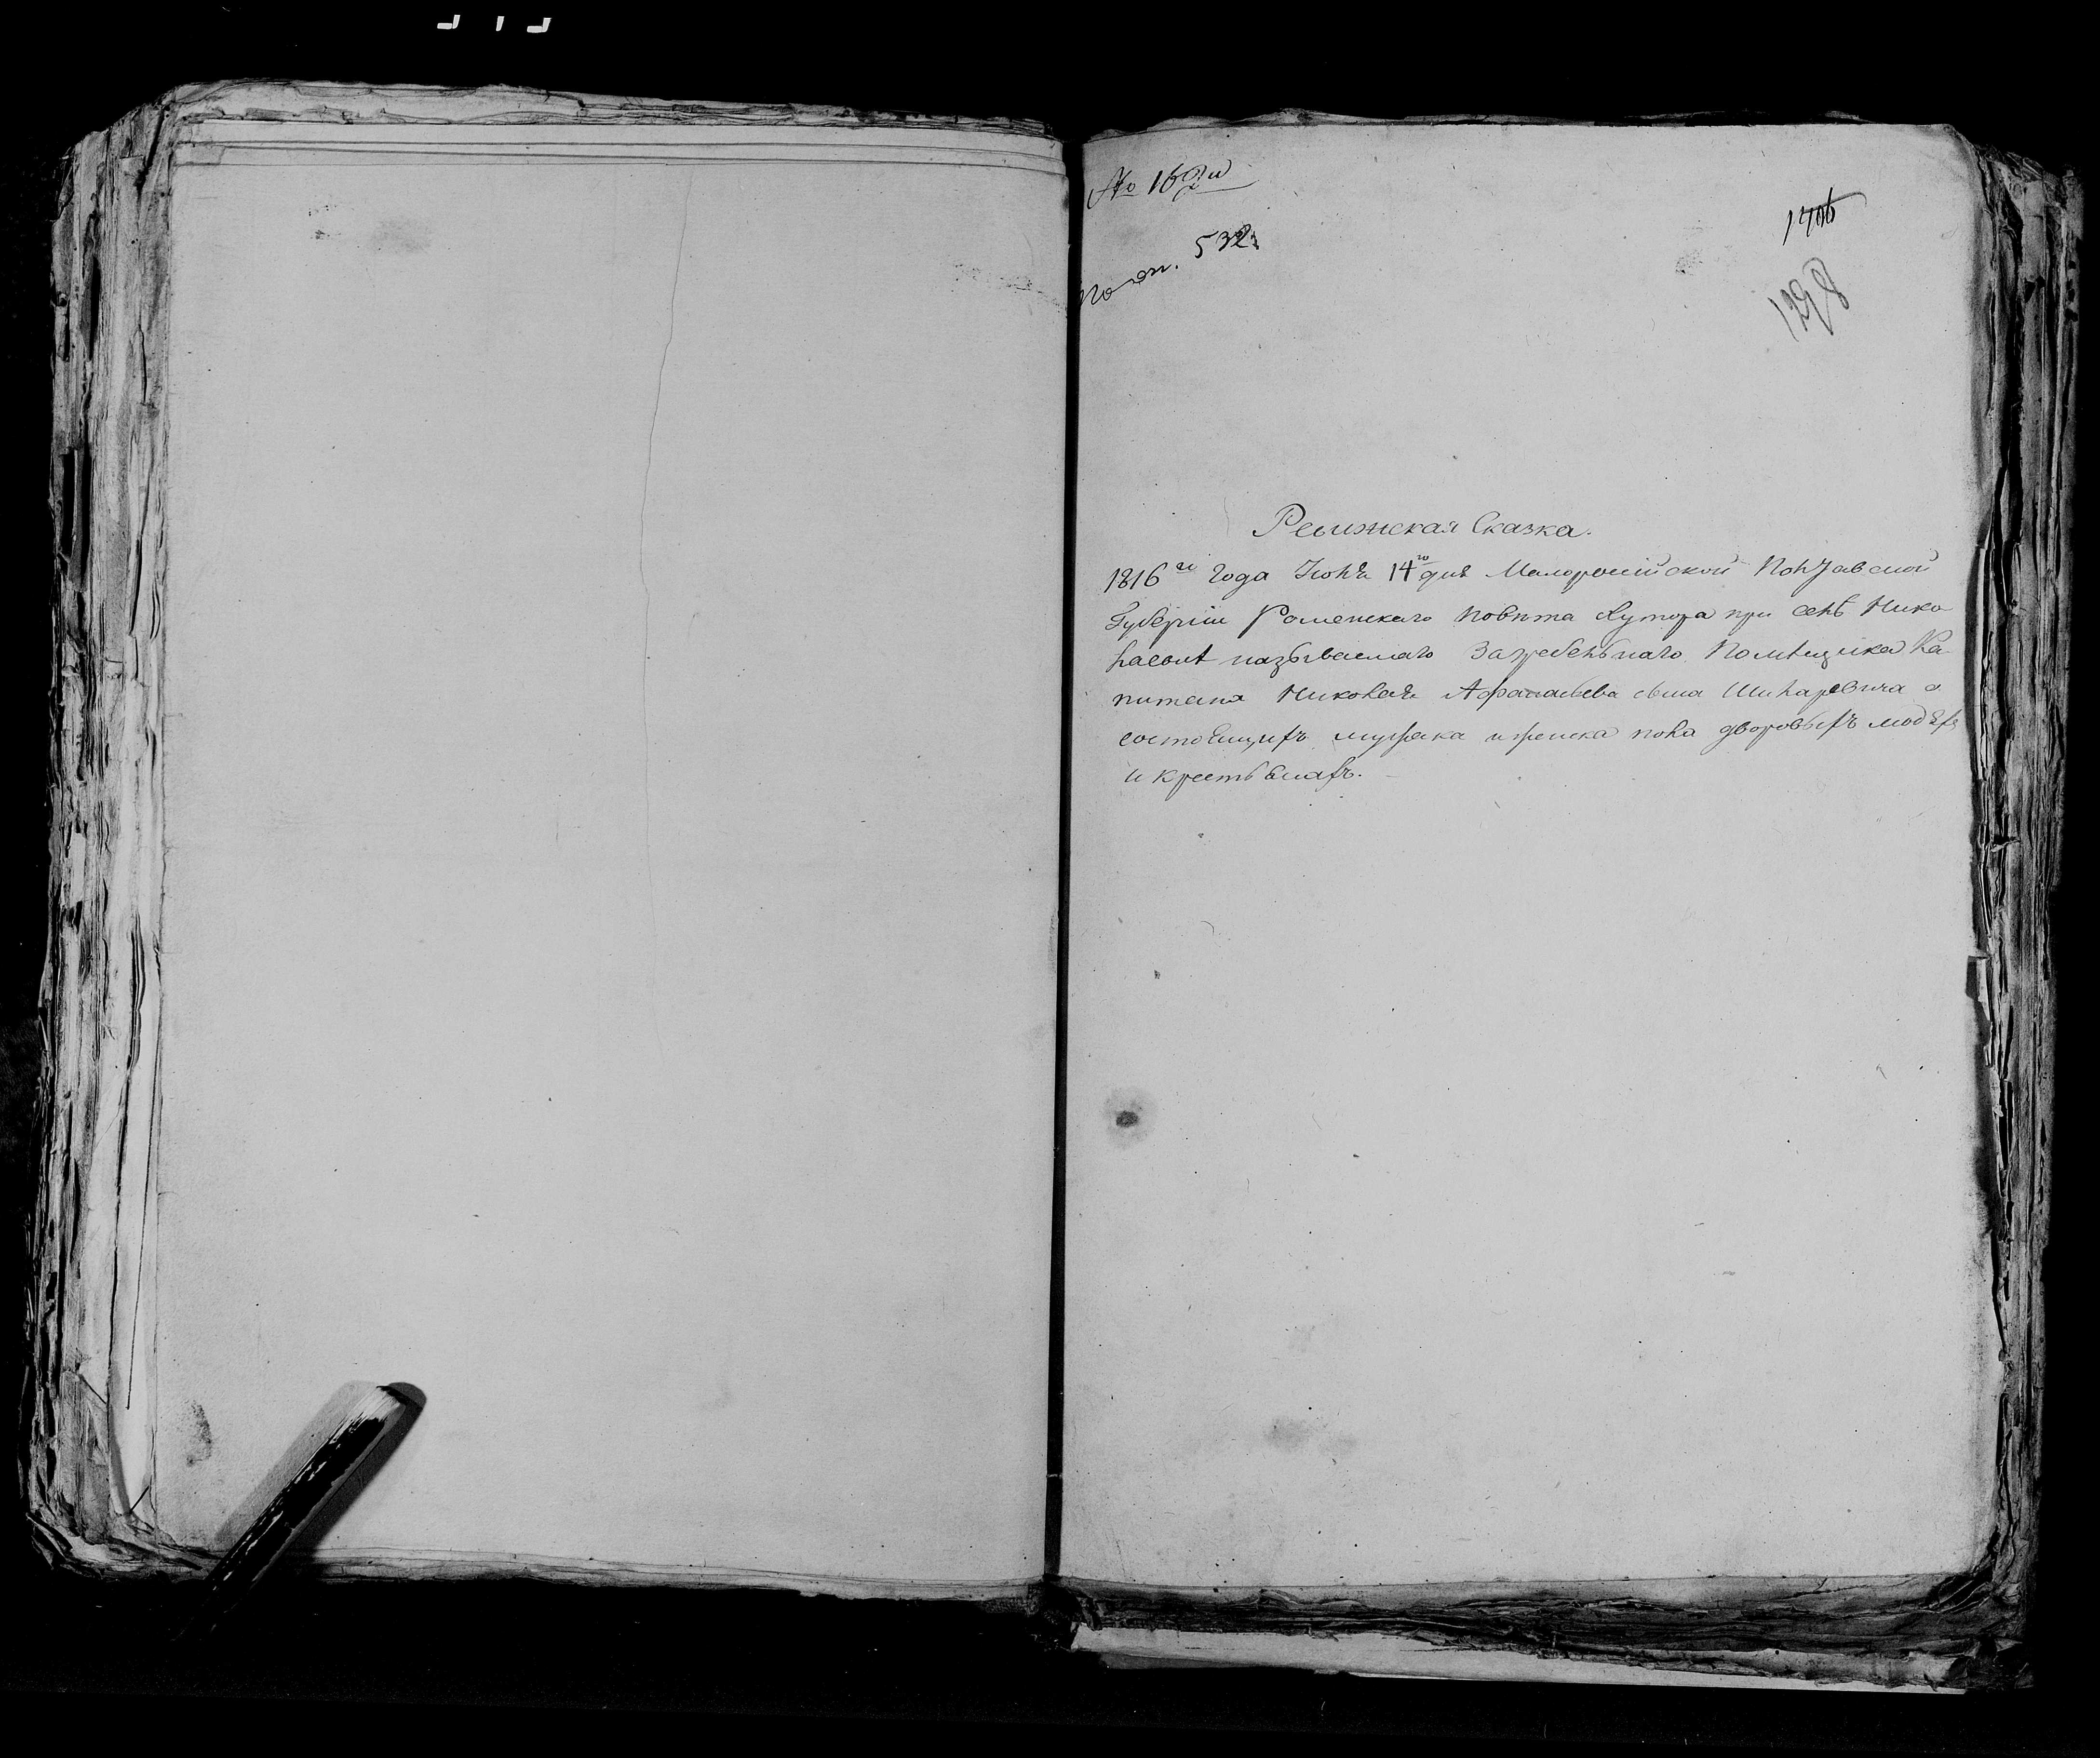 № 169й
По оп. 532
1298
Ревижская Сказка.
1816го года Іюня 14го дня Малоросийской Полтавской
Губерніи Роменскаго повѣта Хутора при селѣ Нико
лаевкѣ называемаго Зажребельнаго Помѣщика Ка
питана Николая Афанасьева сына Шкляревича о
состоящихъ мужска и женска пола дворовыхъ людяхъ
и крестьянахъ.